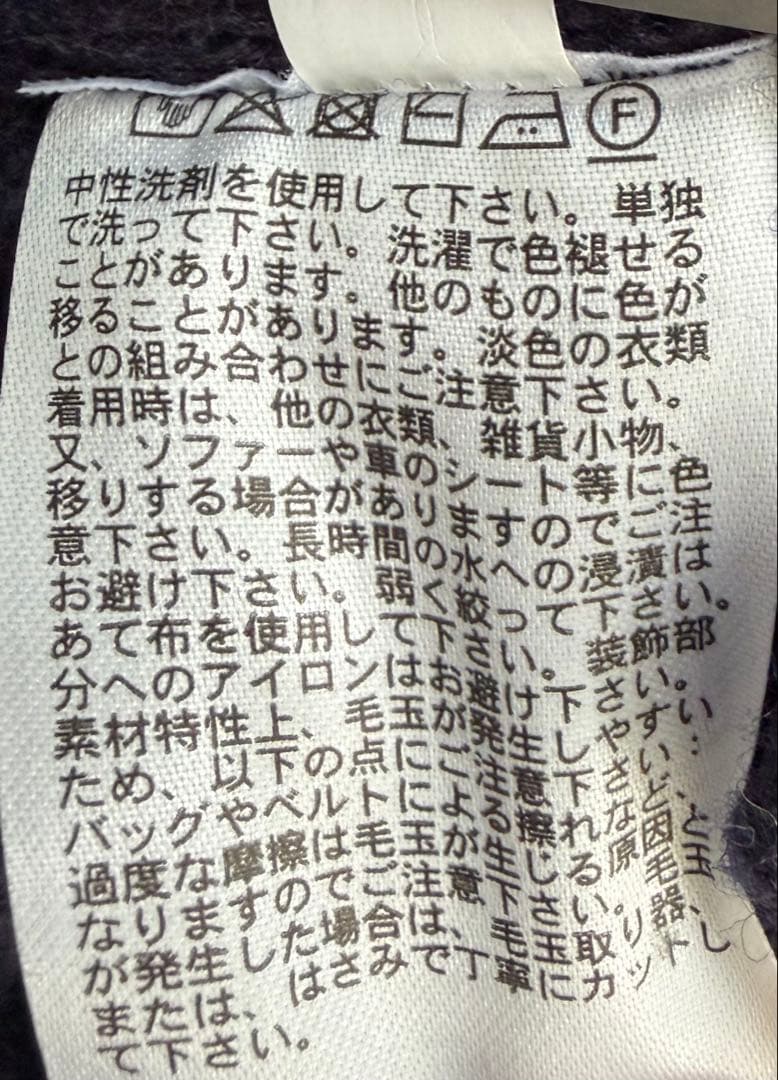 F
中性洗剤を使用して下さい。単独
で洗って下さい。洗濯で色褪せる
ことがあります。他のものにも色が
移ることがあります。淡色の衣類
との組み合わせにご注意下さい。
着用時は、他の衣類、雑貨小物、
又、ソファーや車のシート等に色
移りする場合がありますのでご注
意下さい。長時間の水への浸漬は
お避け下さい。弱く絞って下さい。
あて布を使用して下さい。装飾部
分へのアイロンはお避け下さい。
素材の特性上、毛玉が発生しやすい
ため、以下の点にご注意下さい:
バッグやベルトによる擦れなど、
過度な摩擦は毛玉が生じる原因と
なりますのでご注意下さい。毛玉
が発生した場合は、毛玉取り器、
または、はさみで丁寧にカットし
て下さい。